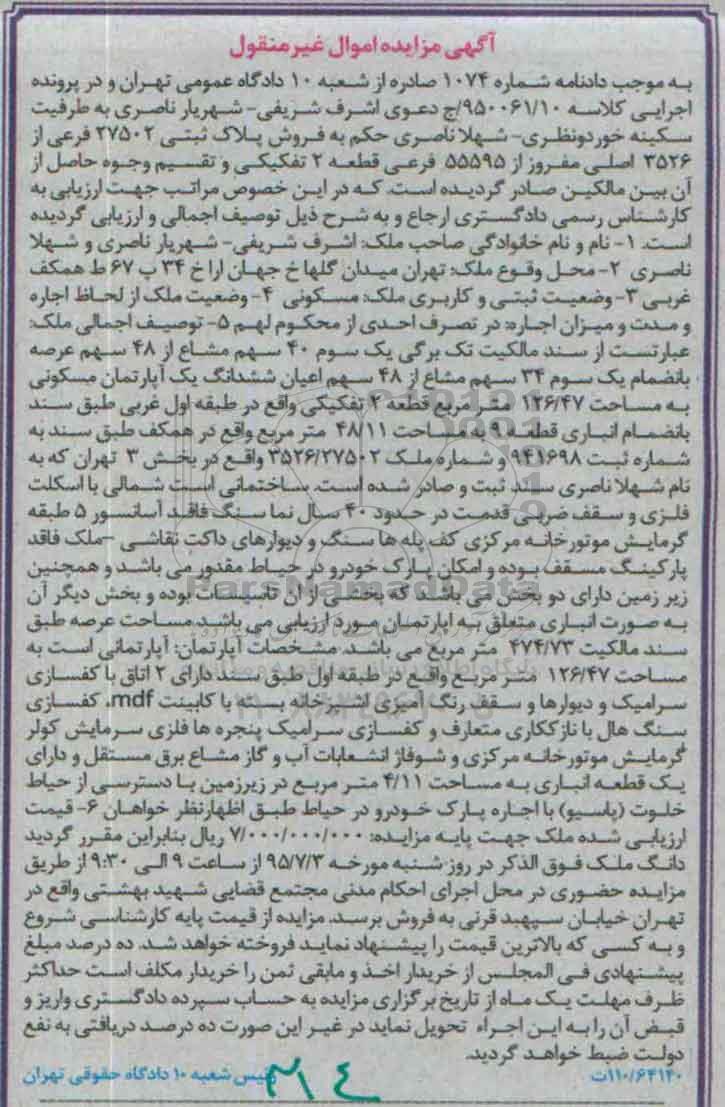 آگهی مزایده اموال غیرمنقول
به موجب دادنامه شماره ۱۰۷۴ صادره از شعبه ۱۰ دادگاه عمومی تهران و در پرونده
اجرایی کلاسه ۹۵۰۰۶۱/۱۰/ج دعوی اشرف شریفی- شهریار ناصری به طرفیت
سکینه خوردونظری- شهلا ناصری حکم به فروش پلاک ثبتی ۲۷۵۰۲ فرعی از
۳۵۲۶ اصلی مفروز از ۵۵۵۹۵ فرعی قطعه ۲ تفکیکی و تقسیم وجوه حاصل از
آن بین مالکین صادر گردیده است. که در این خصوص مراتب جهت ارزیابی به
کارشناس رسمی دادگستری ارجاع و به شرح ذیل توصیف اجمالی و ارزیابی گردیده
است. ۱- نام و نام خانوادگی صاحب ملک: اشرف شریفی- شهریار ناصری و شهلا
ناصری ۲- محل وقوع ملک: تهران میدان گلها خ جهان ارا خ ۳۴ پ ۶۷ ط همکف
غربی ۳- وضعیت ثبتی و کاربری ملک: مسکونی ۴- وضعیت ملک از لحاظ اجاره
و مدت و میزان اجاره: در تصرف احدی از محکوم لهم ۵- توصیف اجمالی ملک:
عبارتست از سند مالکیت تک برگی یک سوم ۴۰ سهم مشاع از ۴۸ سهم عرصه
بانضمام یک سوم ۳۴ سهم مشاع از ۴۸ سهم اعیان ششدانگ یک آپارتمان مسکونی
به مساحت ۱۲۶/۴۷ متر مربع قطعه ۲ تفکیکی واقع در طبقه اول غربی طبق سند
بانضمام انباری قطعه ۹ به مساحت ۴۸/۱۱ متر مربع واقع در همکف طبق سند به
شماره ثبت ۹۴۱۶۹۸ و شماره ملک ۳۵۲۶/۲۷۵۰۲ واقع در بخش ۳ تهران که به
نام شهلا ناصری سند ثبت و صادر شده است. ساختمانی است شمالی با اسکلت
فلزی و سقف ضربی قدمت در حدود ۴۰ سال نما سنگ فاقد آسانسور ۵ طبقه
گرمایش موتورخانه مرکزی کف پله ها سنگ و دیوارهای داکت نقاشی -ملک فاقد
پارکینگ مسقف بوده و امکان پارک خودرو در حیاط مقدور می باشد و همچنین
زیر زمین دارای دو بخش می باشد که بخشی از آن تاسیسات بوده و بخش دیگر آن
به صورت انباری متعلق به اپارتمان مورد ارزیابی می باشد. مساحت عرصه طبق
سند مالکیت ۴۷۴/۷۳ متر مربع می باشد. مشخصات آپارتمان: آپارتمانی است به
مساحت ۱۲۶/۴۷ متر مربع واقع در طبقه اول طبق سند دارای ۲ اتاق با کفسازی
سرامیک و دیوارها و سقف رنگ آمیزی اشپزخانه بسته با کابینت mdf، کفسازی
سنگ هال با نازککاری متعارف و کفسازی سرامیک پنجره ها فلزی سرمایش کولر
گرمایش موتورخانه مرکزی و شوفاژ انشعابات آب و گاز مشاع برق مستقل و دارای
یک قطعه انباری به مساحت ۴/۱۱ متر مربع در زیرزمین با دسترسی از حیاط
خلوت (پاسیو) با اجاره پارک خودرو در حیاط طبق اظهارنظر خواهان ۶- قیمت
ارزیابی شده ملک جهت پایه مزایده: ۷/۰۰۰/۰۰۰/۰۰۰ ریال بنابراین مقرر گردید
دانگ ملک فوق الذکر در روز شنبه مورخه ۹۵/۷/۳ از ساعت ۹ الی ۹:۳۰ از طریق
مزایده حضوری در محل اجرای احکام مدنی مجتمع قضایی شهید بهشتی واقع در
تهران خیابان سپهبد قرنی به فروش برسد. مزایده از قیمت پایه کارشناسی شروع
و به کسی که بالاترین قیمت را پیشنهاد نماید فروخته خواهد شد. ده درصد مبلغ
پیشنهادی فی المجلس از خریدار اخذ و مابقی ثمن را خریدار مکلف است حداکثر
ظرف مهلت یک ماه از تاریخ برگزاری مزایده به حساب سپرده دادگستری واریز و
قبض آن را به این اجراء تحویل نماید در غیر این صورت ده درصد دریافتی به نفع
دولت ضبط خواهد گردید.
۱۱۰/۶۴۱۴۰ت رئیس شعبه ۱۰ دادگاه حقوقی تهران
ParsNamadData